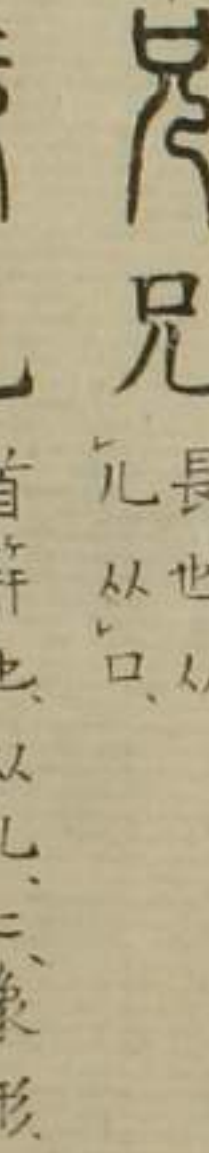 兄
兄
長也从
儿从口、
首笄也、从儿、象形、